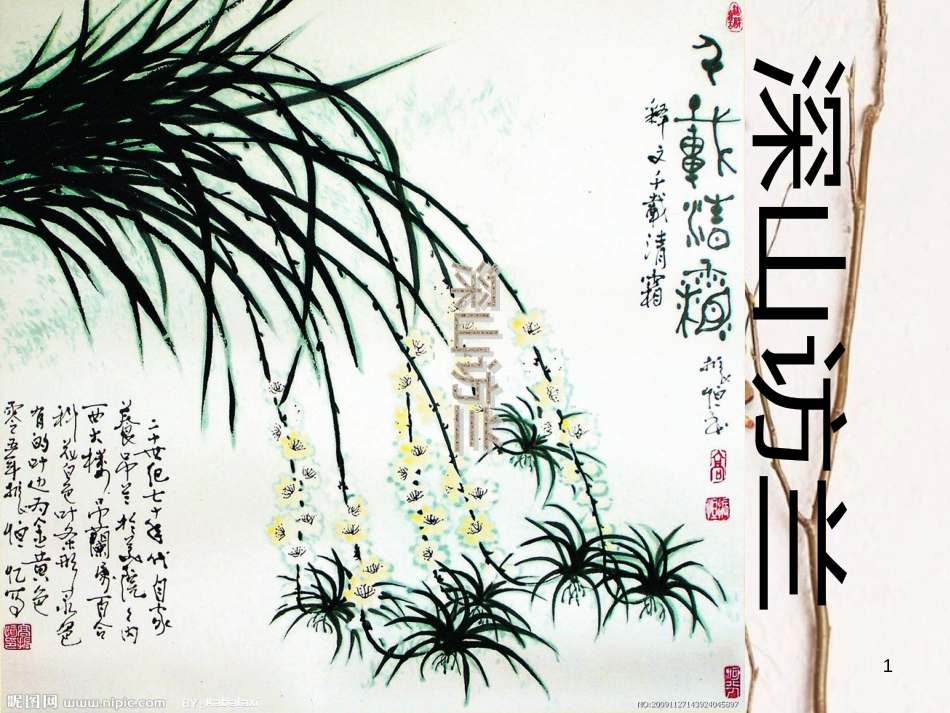 深山访兰
千載清霜
释文千載清霜
振恒画
深山访兰
二十世纪七十年代自家
養吊兰於美院之内
西大樓吊蘭属百合
科花白色叶条形录色
有的叶边为金黄色
零五年振恒忆写
昵图网 www.nipic.com BY: kabalaxi
NO:20091127143924045897
1